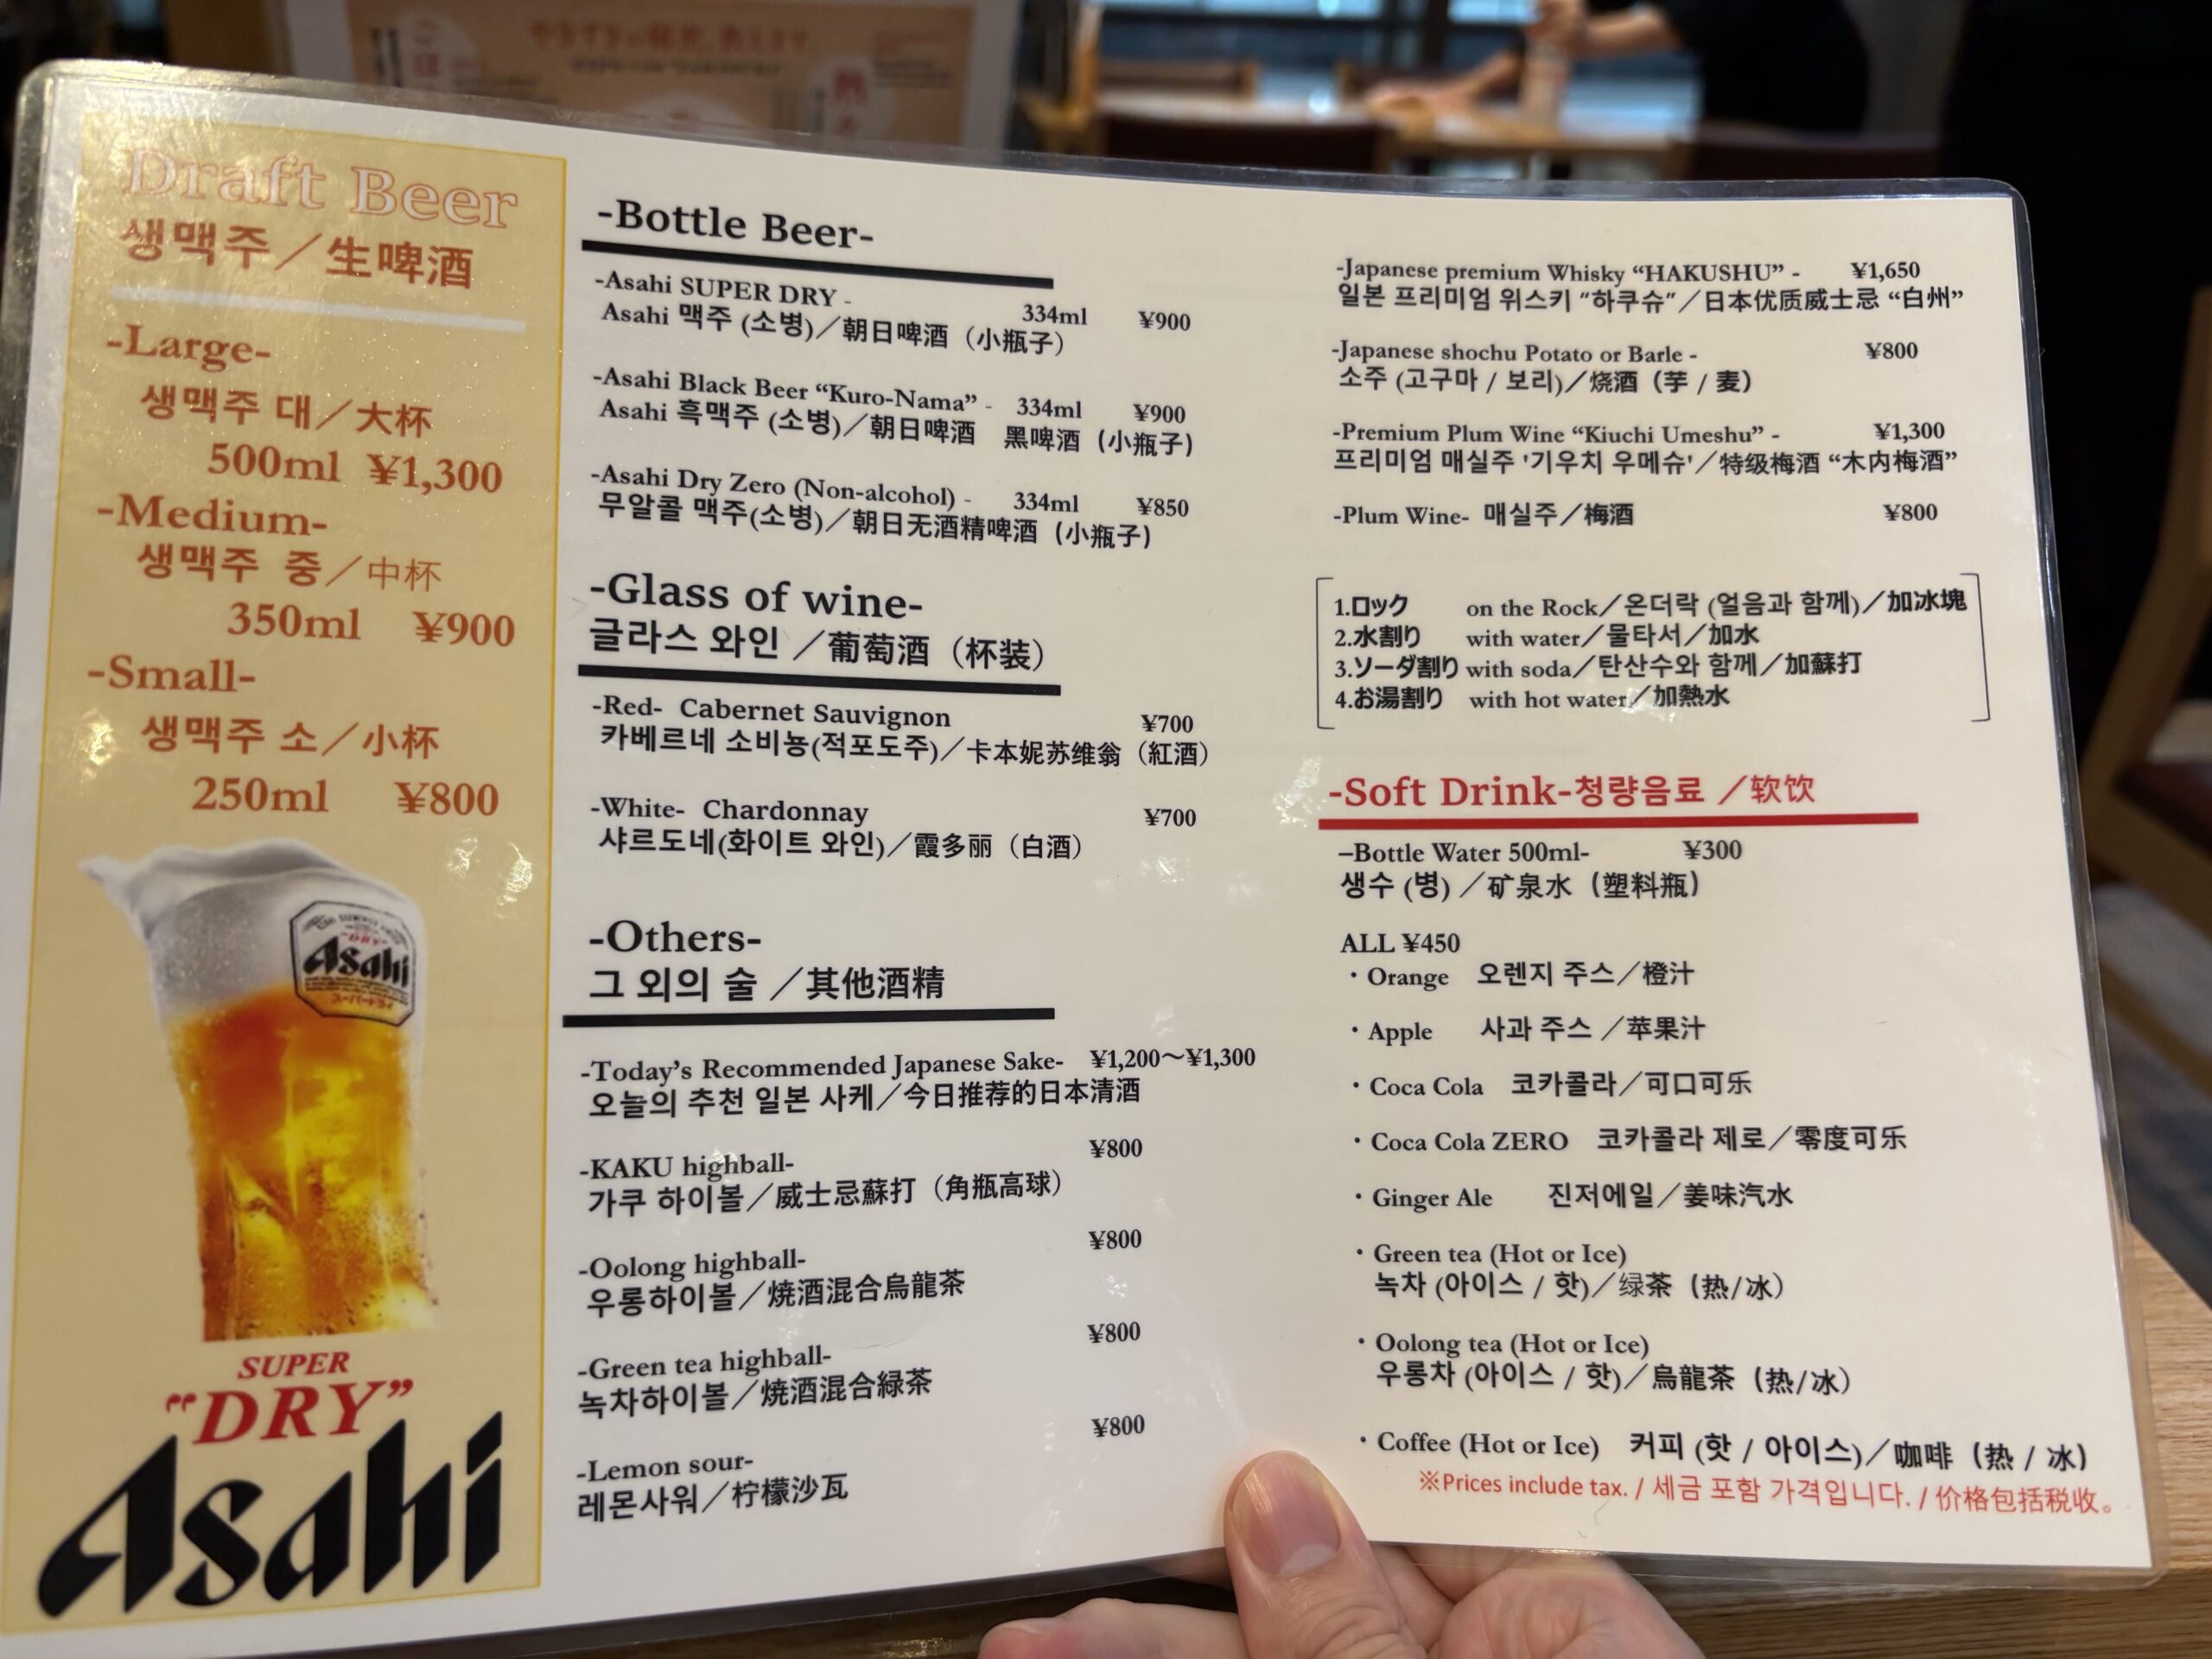 Draft Beer
생맥주／生啤酒
-Large-
생맥주 대／大杯
500ml ¥1,300
-Medium-
생맥주 중／中杯
350ml ¥900
-Small-
생맥주 소／小杯
250ml ¥800
Asahi
スーパードライ
SUPER
"DRY"
Asahi
-Bottle Beer-
-Asahi SUPER DRY - 334ml ¥900
Asahi 맥주 (소병)／朝日啤酒（小瓶子）
-Asahi Black Beer “Kuro-Nama” - 334ml ¥900
Asahi 흑맥주 (소병)／朝日啤酒 黑啤酒（小瓶子）
-Asahi Dry Zero (Non-alcohol) - 334ml ¥850
무알콜 맥주(소병)／朝日无酒精啤酒（小瓶子）
-Glass of wine-
글라스 와인 ／葡萄酒（杯装）
-Red- Cabernet Sauvignon ¥700
카베르네 소비뇽(적포도주)／卡本妮苏维翁（紅酒）
-White- Chardonnay ¥700
샤르도네(화이트 와인)／霞多丽（白酒）
-Others-
그 외의 술 ／其他酒精
-Today’s Recommended Japanese Sake- ¥1,200～¥1,300
오늘의 추천 일본 사케／今日推荐的日本清酒
-KAKU highball- ¥800
가쿠 하이볼／威士忌蘇打（角瓶高球）
-Oolong highball- ¥800
우롱하이볼／焼酒混合烏龍茶
-Green tea highball- ¥800
녹차하이볼／焼酒混合緑茶
-Lemon sour- ¥800
레몬사워／柠檬沙瓦
-Japanese premium Whisky “HAKUSHU” - ¥1,650
일본 프리미엄 위스키 “하쿠슈”／日本优质威士忌 “白州”
-Japanese shochu Potato or Barle - ¥800
소주 (고구마 / 보리)／烧酒（芋 / 麦）
-Premium Plum Wine “Kiuchi Umeshu” - ¥1,300
프리미엄 매실주 '기우치 우메슈'／特级梅酒 “木内梅酒”
-Plum Wine- 매실주／梅酒 ¥800
1.ロック on the Rock／온더락 (얼음과 함께)／加冰塊
2.水割り with water／물타서／加水
3.ソーダ割り with soda／탄산수와 함께／加蘇打
4.お湯割り with hot water／加熱水
-Soft Drink-청량음료 ／软饮
–Bottle Water 500ml- ¥300
생수 (병) ／矿泉水（塑料瓶）
ALL ¥450
・Orange 오렌지 주스／橙汁
・Apple 사과 주스 ／苹果汁
・Coca Cola 코카콜라／可口可乐
・Coca Cola ZERO 코카콜라 제로／零度可乐
・Ginger Ale 진저에일／姜味汽水
・Green tea (Hot or Ice)
녹차 (아이스 / 핫)／绿茶（热/冰）
・Oolong tea (Hot or Ice)
우롱차 (아이스 / 핫)／烏龍茶（热/冰）
・Coffee (Hot or Ice) 커피 (핫 / 아이스)／咖啡（热 / 冰）
※Prices include tax. / 세금 포함 가격입니다. / 价格包括税收。